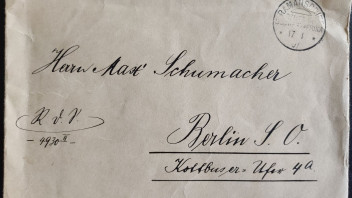 Herrn Max Schumacher
R. d. V.
4930 II
Berlin S. O.
Kottbuser-Ufer 4a